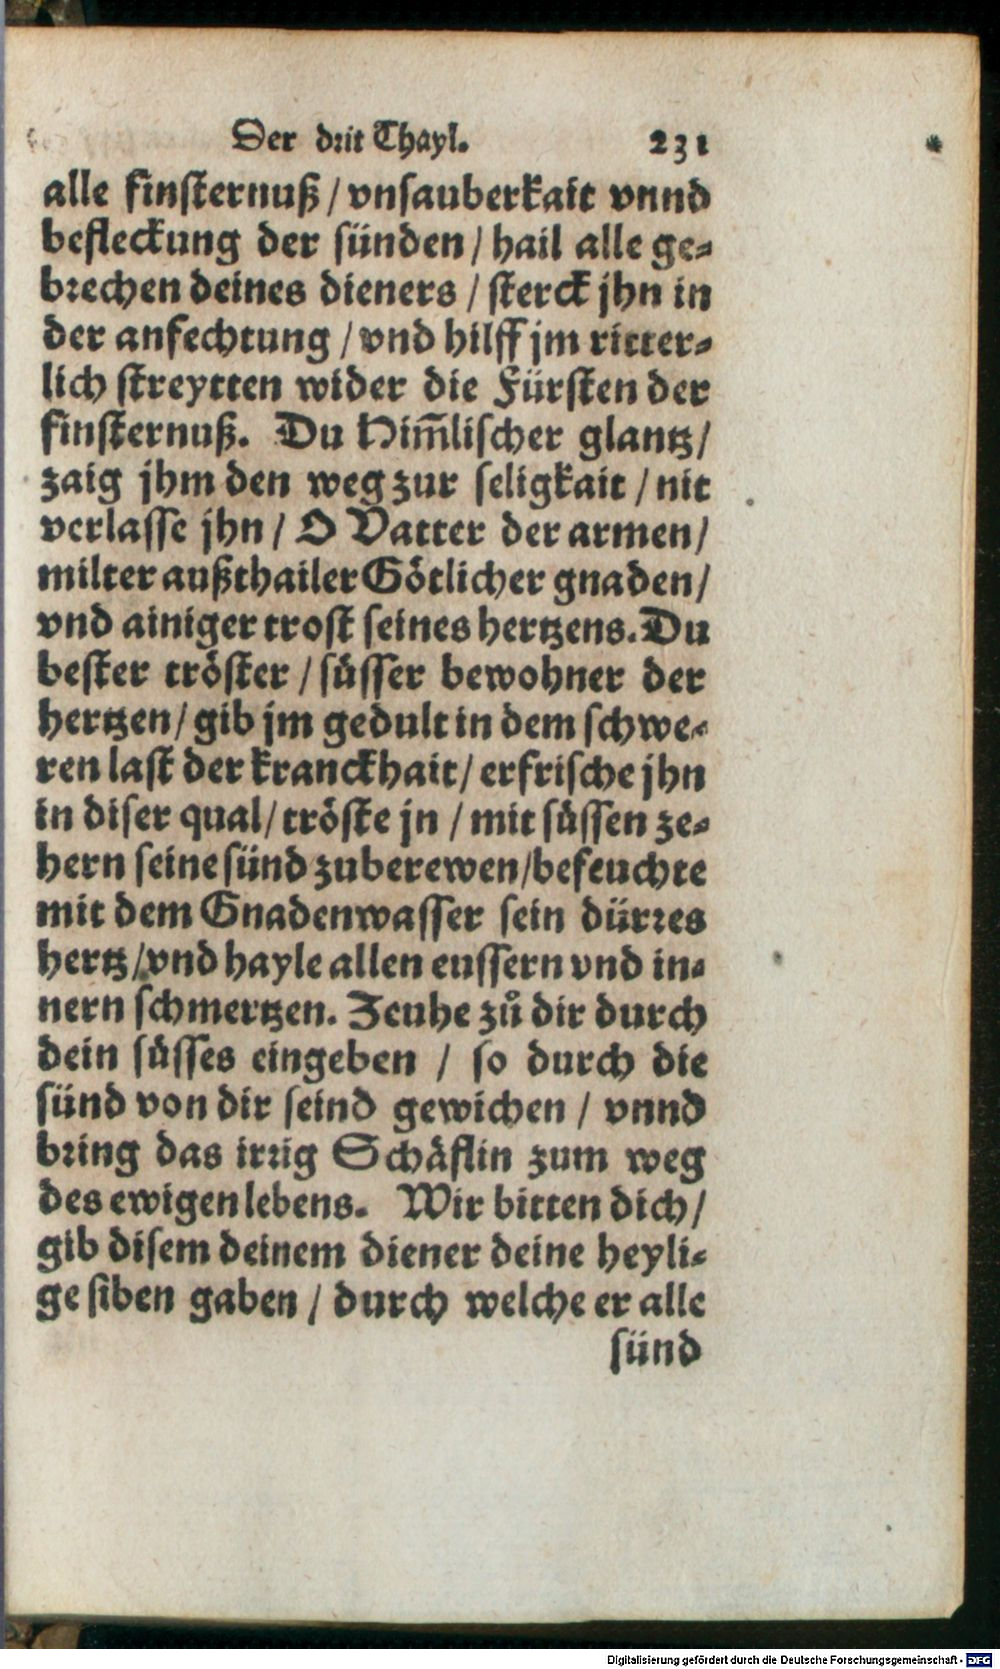 Der drit Thayl. 231
alle finsternuß / vnsauberkait vnnd
befleckung der sünden / hail alle ge-
brechen deines dieners / sterck jhn in
der anfechtung / vnd hilff jm ritter-
lich streytten wider die Fürsten der
finsternuß. Du Him̃lischer glantz /
zaig jhm den weg zur seligkait / nit
verlasse jhn / O Vatter der armen /
milter außthailer Götlicher gnaden /
vnd ainiger trost seines hertzens. Du
bester tröster / süsser bewohner der
hertzen / gib jm gedult in dem schwe-
ren last der kranckhait / erfrische jhn
in diser qual / tröste jn / mit süssen ze-
hern seine sünd zuberewen / befeuchte
mit dem Gnadenwasser sein dürres
hertz / vnd hayle allen eussern vnd in-
nern schmertzen. Zeuhe zů dir durch
dein süsses eingeben / so durch die
sünd von dir seind gewichen / vnnd
bring das irrig Schäflin zum weg
des ewigen lebens. Wir bitten dich /
gib disem deinem diener deine heyli-
ge siben gaben / durch welche er alle
sünd
Digitalisierung gefördert durch die Deutsche Forschungsgemeinschaft - DFG